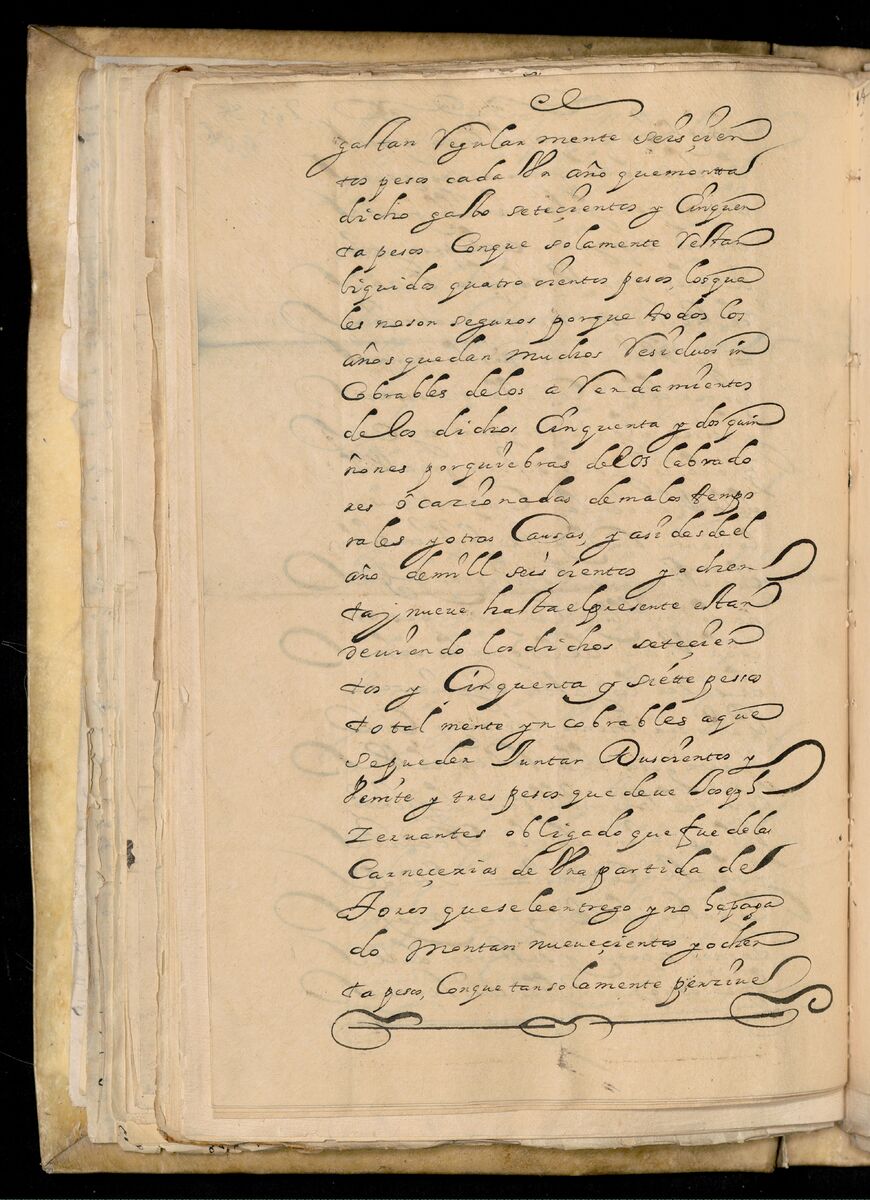 gastan Regularmente seisçien
tos pesos cada Vn año quemontta
dicho gasto seteçientos y Çinquen
ta pesos Conque solamente Restan
liquidos quatro cientos pesos, losqua
les noson seguros porque todos los
años quedan muchos Residuos in
Cobrables delos a Rendamientos
de los dichos Çinquenta y dos quin
ñones por quiebras de los labrado
res ô cazionadas demalos tempo
rales y otras Causas, y asi desde el
año demill seisçientos y ochen
tay nueve hasta elpresente estan
deuiendo los dichos seteçien
tos y Çinquenta y siètte pesos
total mente yncobrables aque
sepueden Juntar Duscientos y
Veinte y tres pesos que deue Joseph
Zeruantes obligado que fue delas
Carneçerias de Vna partida de
toros que sele entrego y no hapaga
do montan nueveçientos y ochen
ta pesos, Conque tan solamente perciue